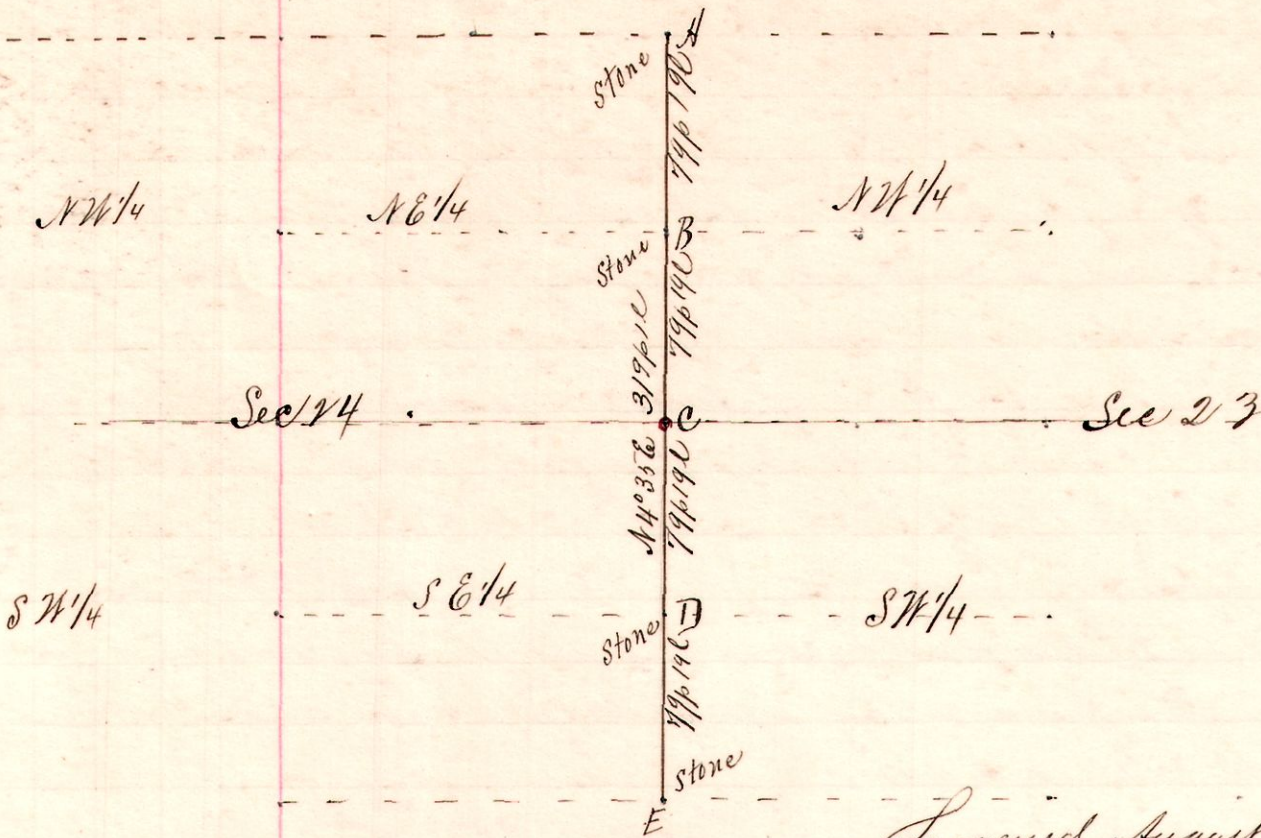 A
Stone
79p 19l
NW 1/4
NE 1/4
NW 1/4
B
Stone
79p 19l
319p 1l
Sec 24
C
Sec 23
N 4° 35 E
79p 19l
SW 1/4
SE 1/4
D
SW 1/4
Stone
79p 19l
Stone
E
August